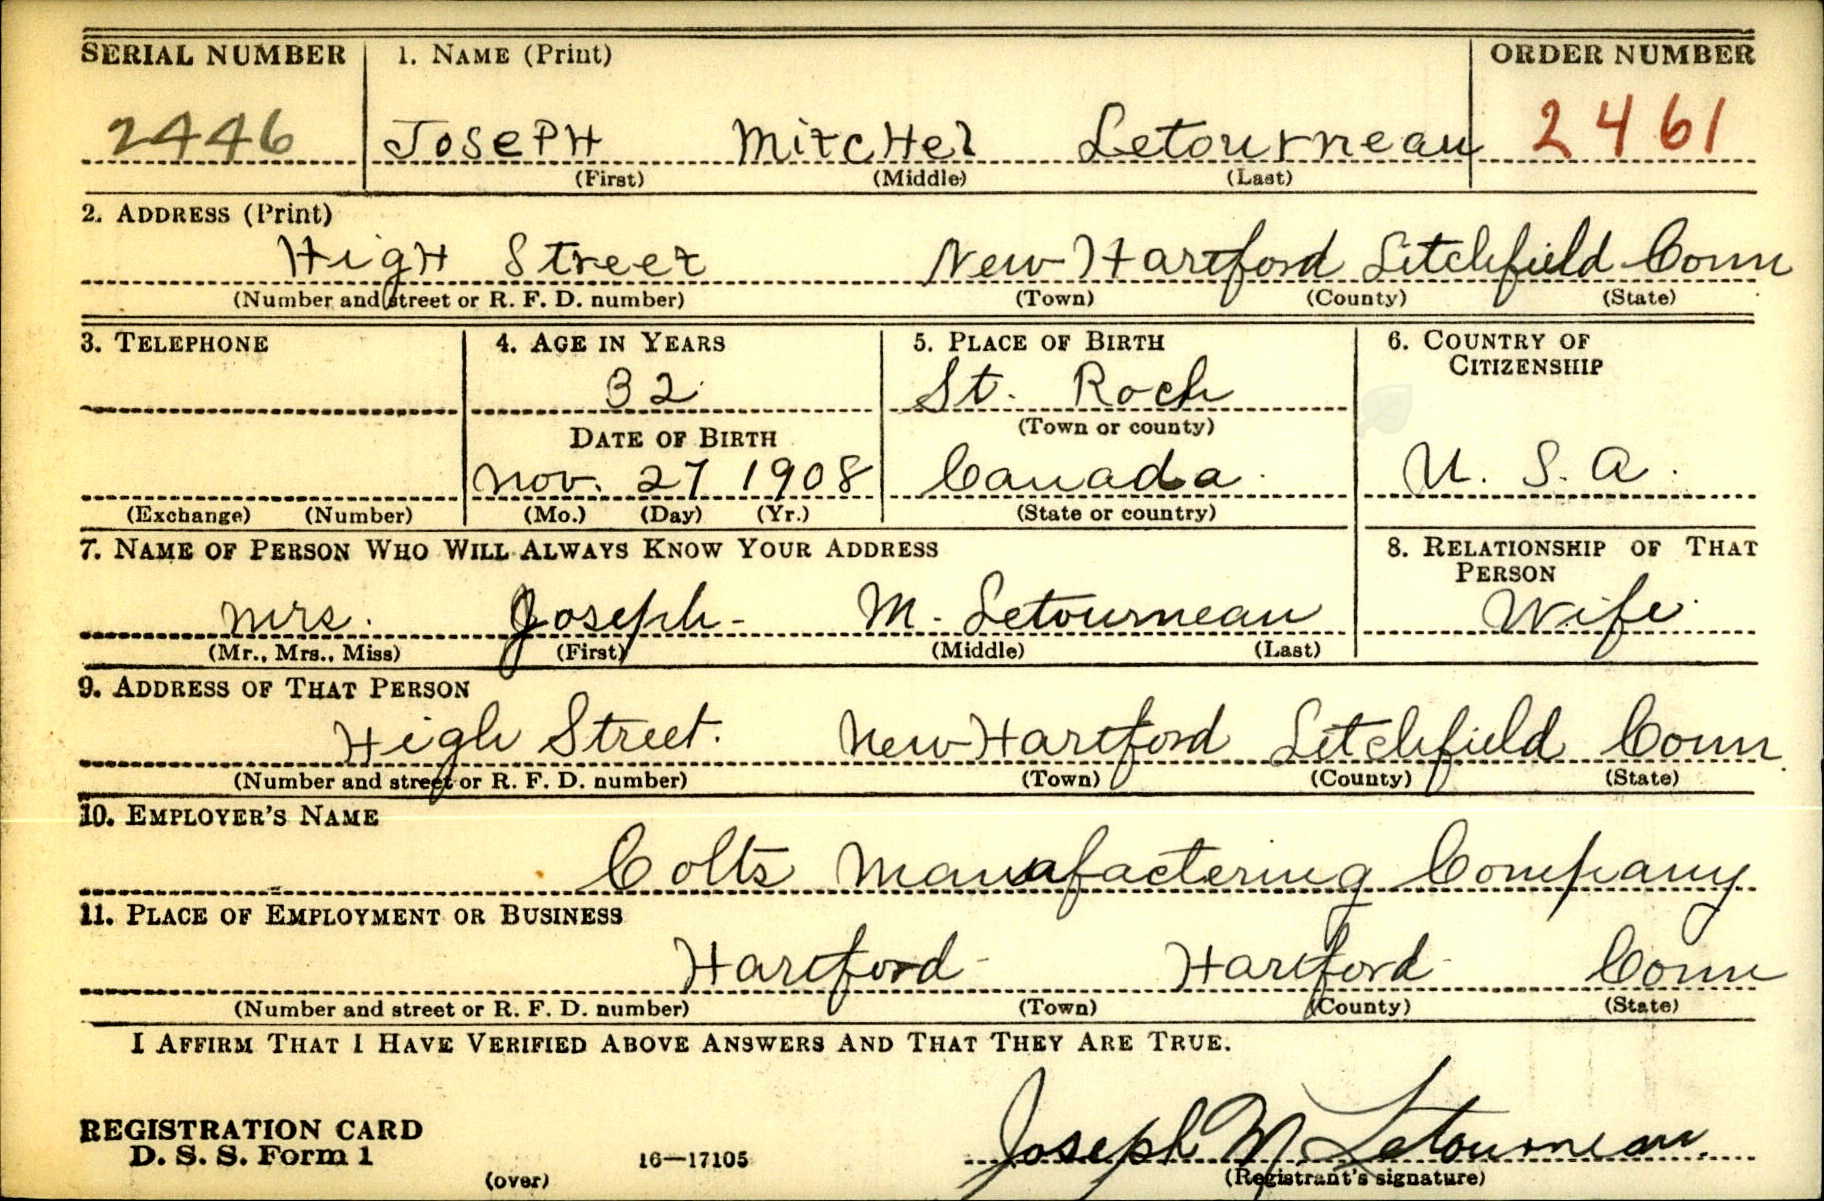 SERIAL NUMBER 1. NAME (Print) ORDER NUMBER
2446 JOSEPH MITCHEL Letourneau 2461
(First) (Middle) (Last)
2. ADDRESS (Print)
HigH Street New Hartford Litchfield Conn
(Number and street or R. F. D. number) (Town) (County) (State)
3. TELEPHONE 4. AGE IN YEARS 5. PLACE OF BIRTH 6. COUNTRY OF CITIZENSHIP
32 St. Roch
DATE OF BIRTH (Town or county)
Nov. 27 1908 Canada U. S. A.
(Exchange) (Number) (Mo.) (Day) (Yr.) (State or country)
7. NAME OF PERSON WHO WILL ALWAYS KNOW YOUR ADDRESS 8. RELATIONSHIP OF THAT PERSON
Mrs. Joseph - M. Letourneau Wife
(Mr., Mrs., Miss) (First) (Middle) (Last)
9. ADDRESS OF THAT PERSON
High Street. New Hartford Litchfield Conn.
(Number and street or R. F. D. number) (Town) (County) (State)
10. EMPLOYER'S NAME
Colts Manufactering Company
11. PLACE OF EMPLOYMENT OR BUSINESS
Hartford - Hartford - Conn
(Number and street or R. F. D. number) (Town) (County) (State)
I AFFIRM THAT I HAVE VERIFIED ABOVE ANSWERS AND THAT THEY ARE TRUE.
Joseph M. Letourneau.
REGISTRATION CARD
D. S. S. Form 1 16—17105 (Registrant's signature)
(over)